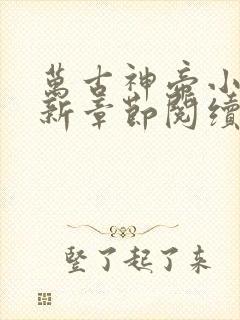 萬古神帝小
新章節閱續
竖了起了来